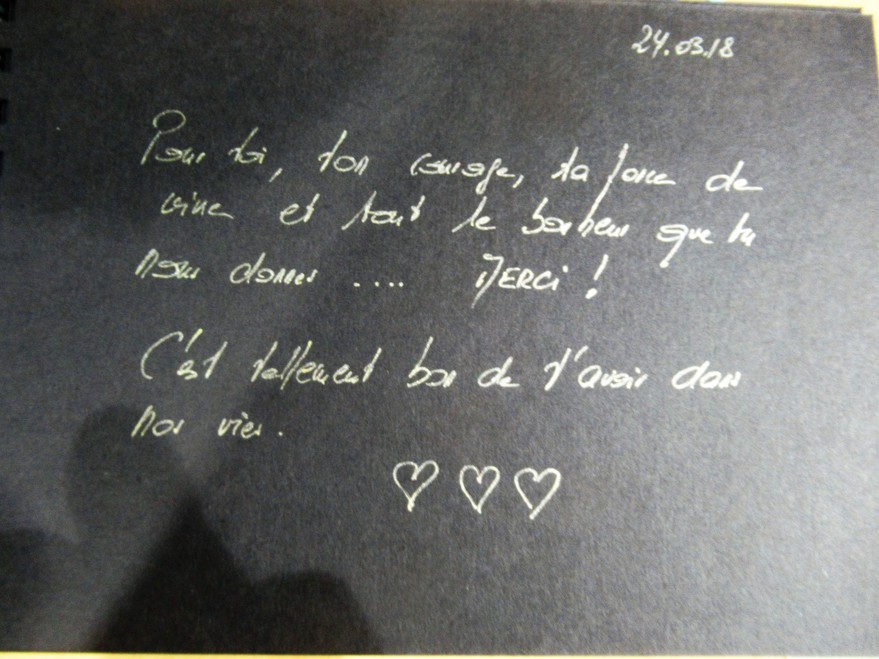 24.03.18
Pour toi, ton courage, ta force de
vivre et tout le bonheur que tu
nous donnes .... MERCI !
C'est tellement bon de t'avoir dans
nos vies.